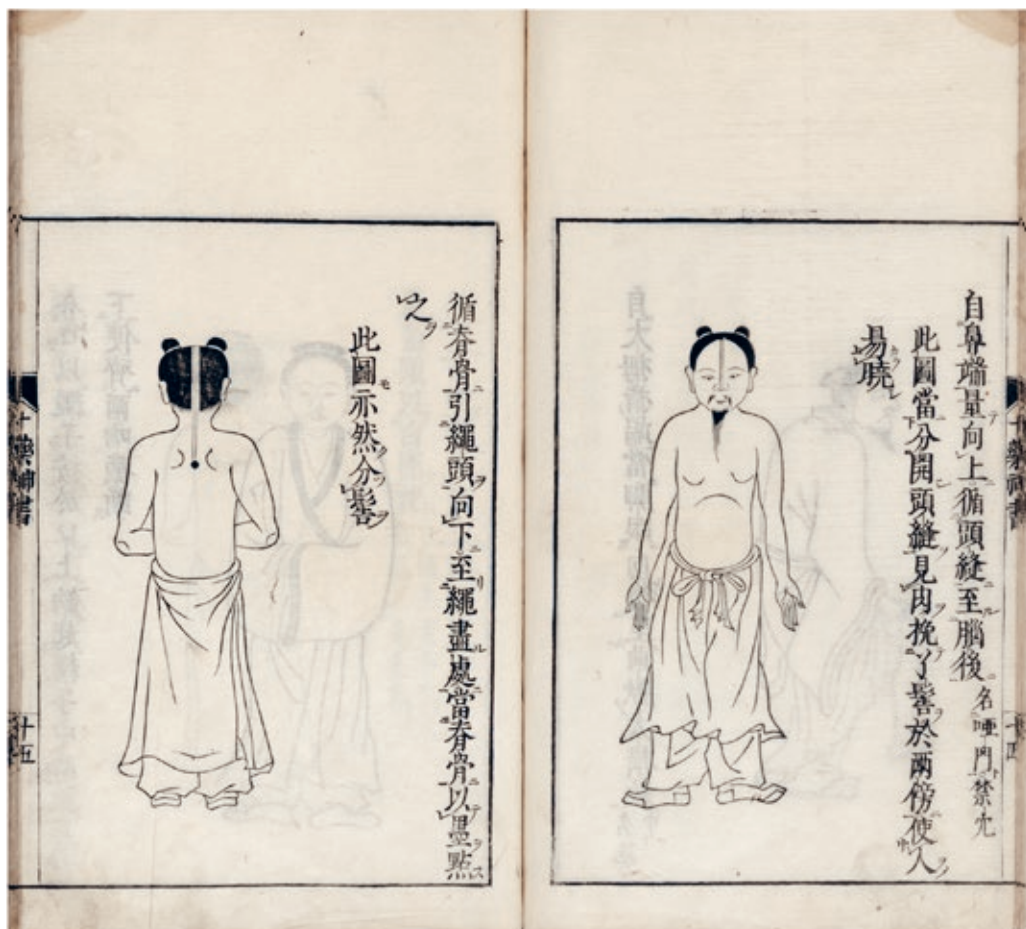 十藥神書
十四
自鼻端量向上循頭縫至腦後 名啞門禁穴
此圖當分開頭縫見肉挽了髻於兩傍使人
易曉
循脊骨引繩頭向下至繩盡處當脊骨以墨點
之
此圖亦然分髻
十藥神書
十五